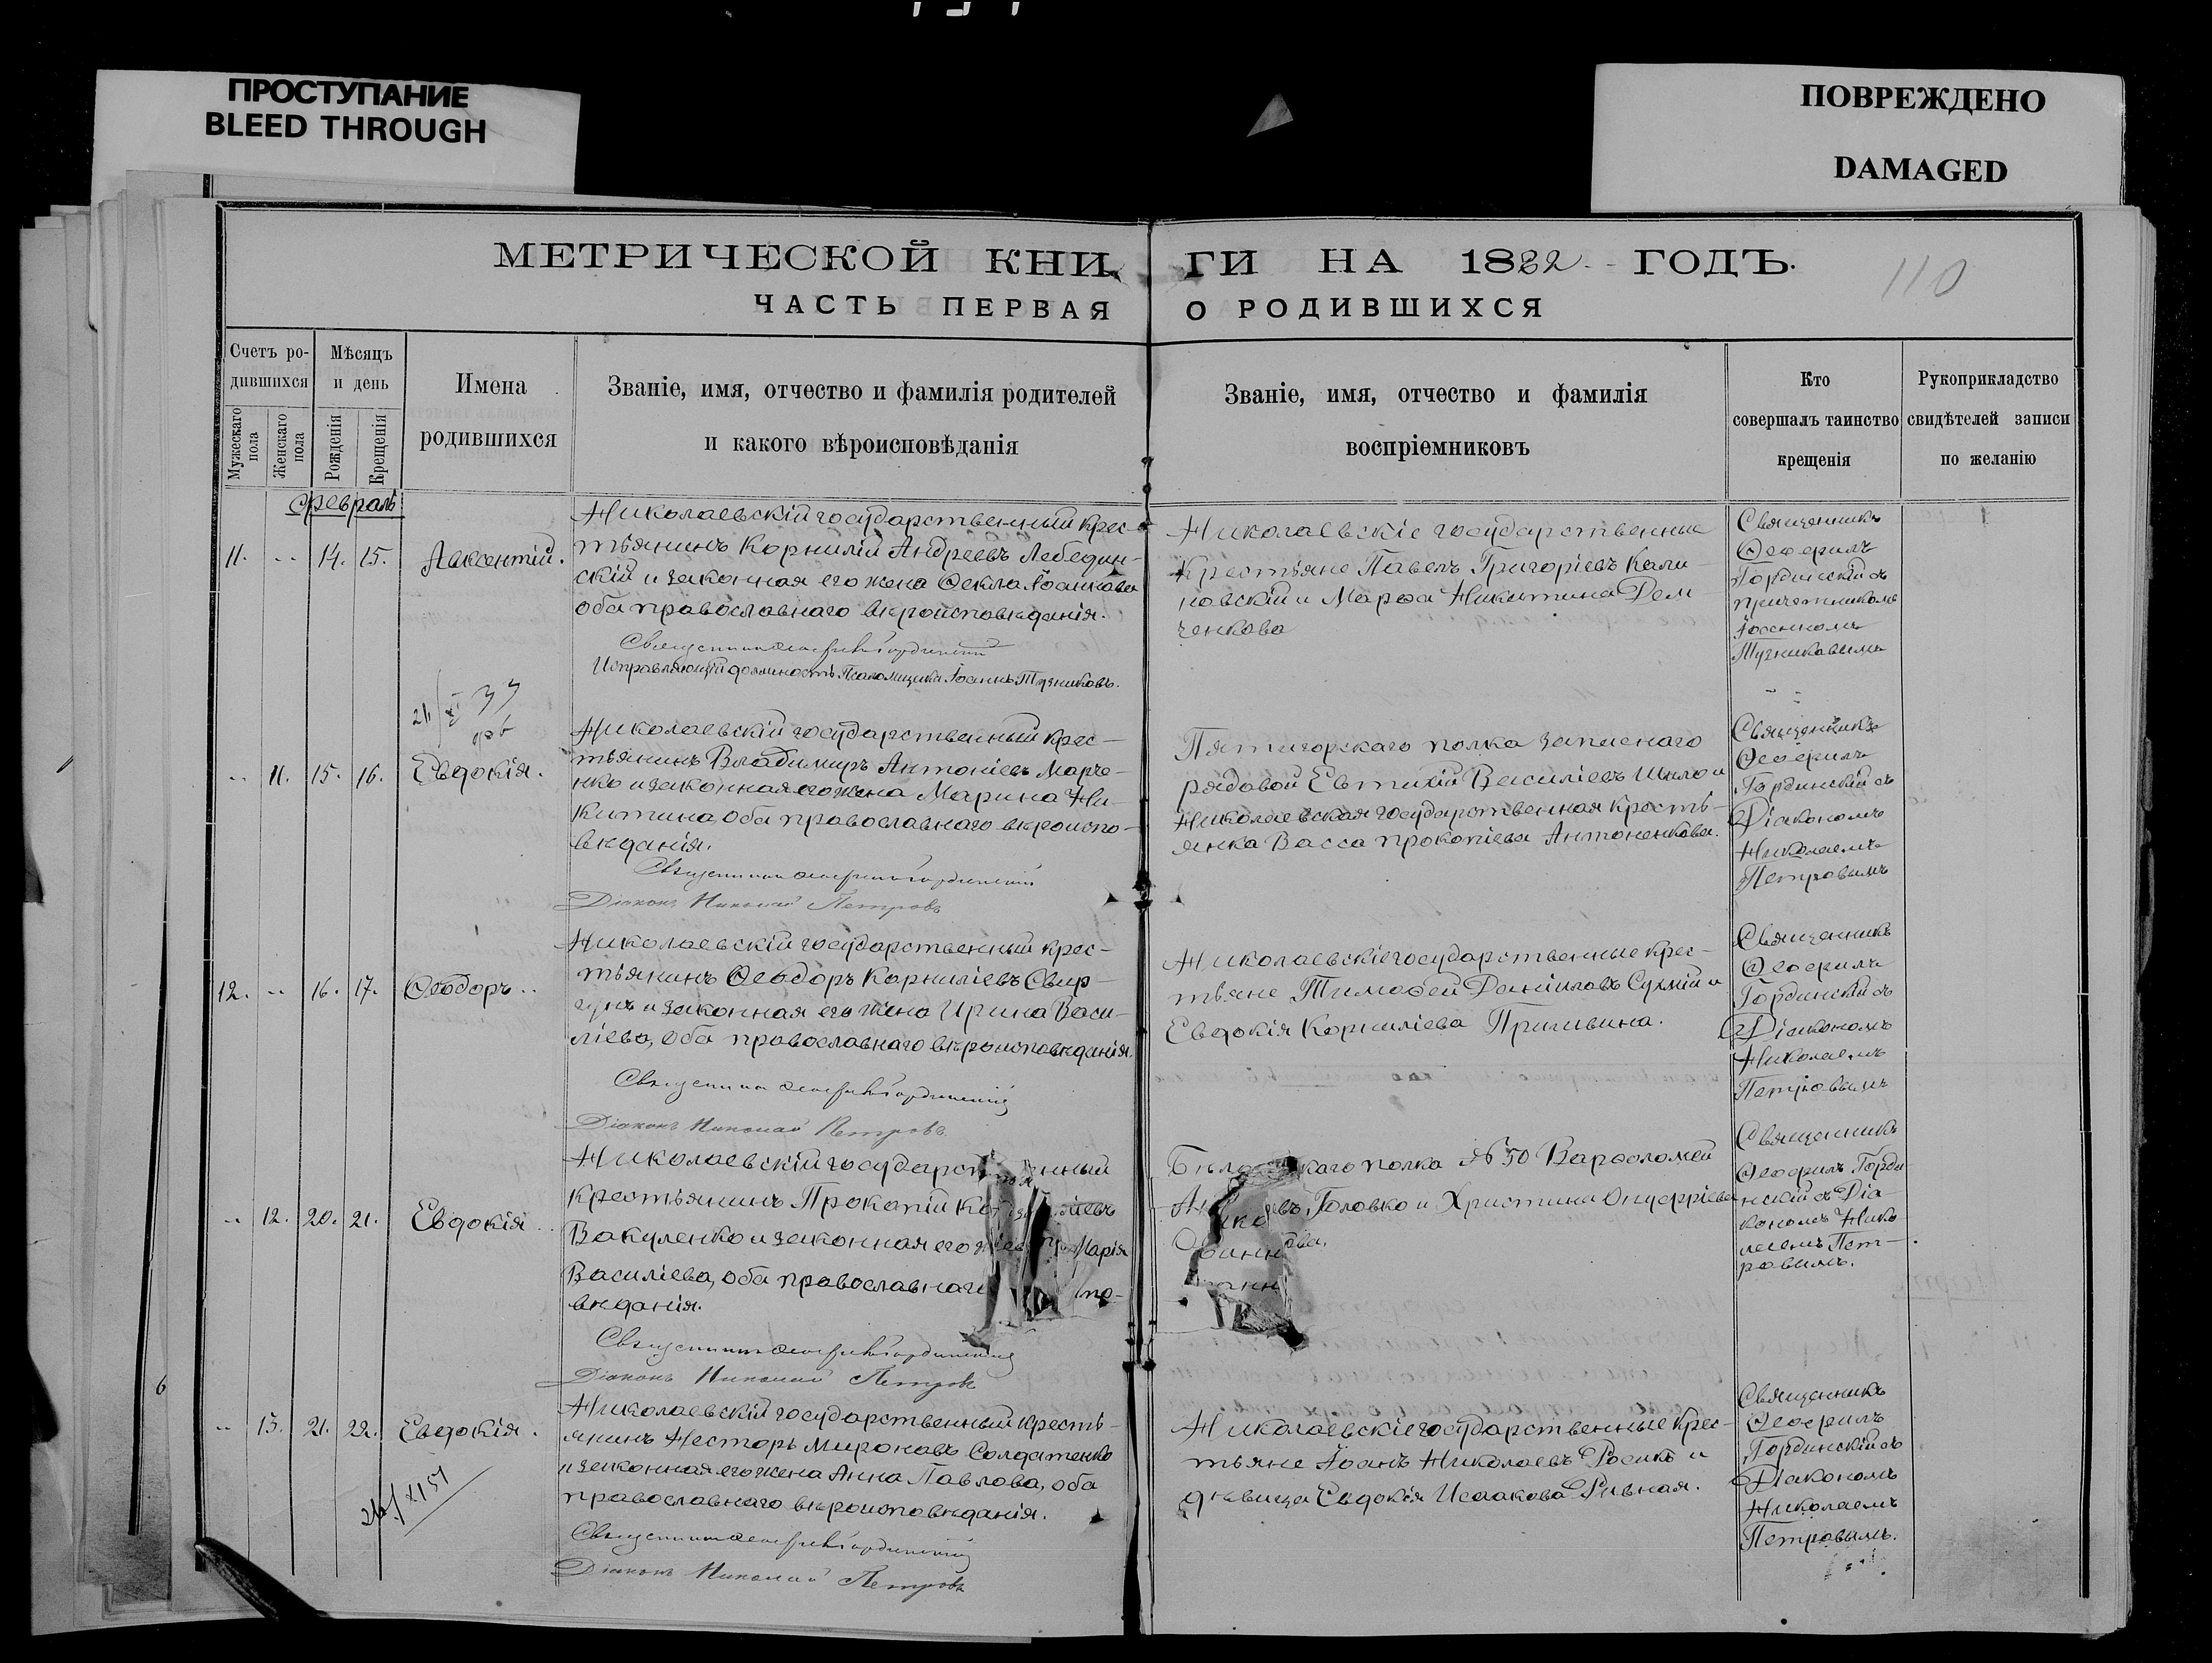 ПРОСТУПАНИЕ
BLEED THROUGH
ПОВРЕЖДЕНО
DAMAGED
МЕТРИЧЕСКОЙ КНИ ГИ НА 1882 ГОДЪ.
110
ЧАСТЬ ПЕРВАЯ О РОДИВШИХСЯ
Счетъ ро-
дившихся
Мужескаго пола
Женскаго пола
Мѣсяцъ
и день
Рожденія
Крещенія
Имена
родившихся
Званіе, имя, отчество и фамилія родителей
и какого вѣроисповѣданія
Званіе, имя, отчество и фамилія
воспріемниковъ
Кто
совершалъ таинство
крещенія
Рукоприкладство
свидѣтелей записи
по желанію
Февраль
11. -- 14. 15. Авксентій.
Николаевскій государственный крес-
тьянинъ Корнилій Андреевъ Лебедин-
скій и законная его жена Ѳекла
оба православнаго вѣроисповѣданія.
Священникъ Ѳеофилъ Гординскій
Исправляющій должность Псаломщика Іоаннъ Тучниковъ.
Николаевскіе государственные
Крестьяне Павелъ Григоріевъ Кали-
новскій и Марѳа Никитина Дем-
ченкова
Священникъ
Ѳеофилъ
Гординскій съ
причетникомъ
Іоанномъ
Тучниковымъ
-- 11. 15. 16. Евдокія.
Николаевскій государственный крес-
тьянинъ Владимиръ Антоніевъ Марче-
нко и законная его жена Марина Ни-
китина, оба православнаго вѣроиспо-
вѣданія.
Священникъ Ѳеофилъ Гординскій
Діаконъ Николай Петровъ
Пятигорскаго полка запаснаго
рядовой Евтихій Василіевъ Шило и
Николаевская государственная кресть-
янка Васса Прокопіева Антоненкова.
Священникъ
Ѳеофилъ
Гординскій съ
Діакономъ
Николаемъ
Петровымъ
12. -- 16. 17. Ѳеодоръ
Николаевскій государственный крес-
тьянинъ Ѳеодоръ Корниліевъ Свир-
гунъ и законная его жена Ирина Васи-
ліева, оба православнаго вѣроисповѣданія.
Священникъ Ѳеофилъ Гординскій
Діаконъ Николай Петровъ
Николаевскіе государственные крес-
тьяне Тимоѳей Даніиловъ Сухмій и
Евдокія Корниліева
Священникъ
Ѳеофилъ
Гординскій съ
Діакономъ
Николаемъ
Петровымъ
-- 12. 20. 21. Евдокія
Николаевскій государст нный
крестьянинъ Прокопій
Вакуленко и законная его Марія
Василіева, оба православнаго
вѣданія.
Священникъ Ѳеофилъ Гординскій
Діаконъ Николай Петровъ
полка № 50 Варѳоломей
Головко и Христина Онуфріева
Священникъ
Ѳеофилъ Горди-
нскій съ Діа-
кономъ Нико-
лаемъ Пет-
ровымъ.
-- 13. 21. 22. Евдокія.
Николаевскій государственный кресть-
янинъ Несторъ Мироновъ Солдатенко
и законная его жена Анна Павлова, оба
православнаго вѣроисповѣданія.
Священникъ Ѳеофилъ Гординскій
Діаконъ Николай Петровъ
Николаевскіе государственные крес-
тьяне Іоанъ Николаевъ и
дѣвица Евдокія Исаакова Рывная.
Священникъ
Ѳеофилъ
Гординскій съ
Діакономъ
Николаемъ
Петровымъ.